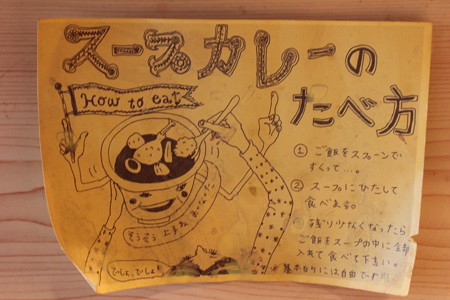 スープカレーの
たべ方
How to eat
① ご飯をスプーンで
すくって…。
② スープにひたして
食べまする。
残り少なくなったら
ご飯をスープの中に全部
入れて食べて下さい。
※基本的には自由で